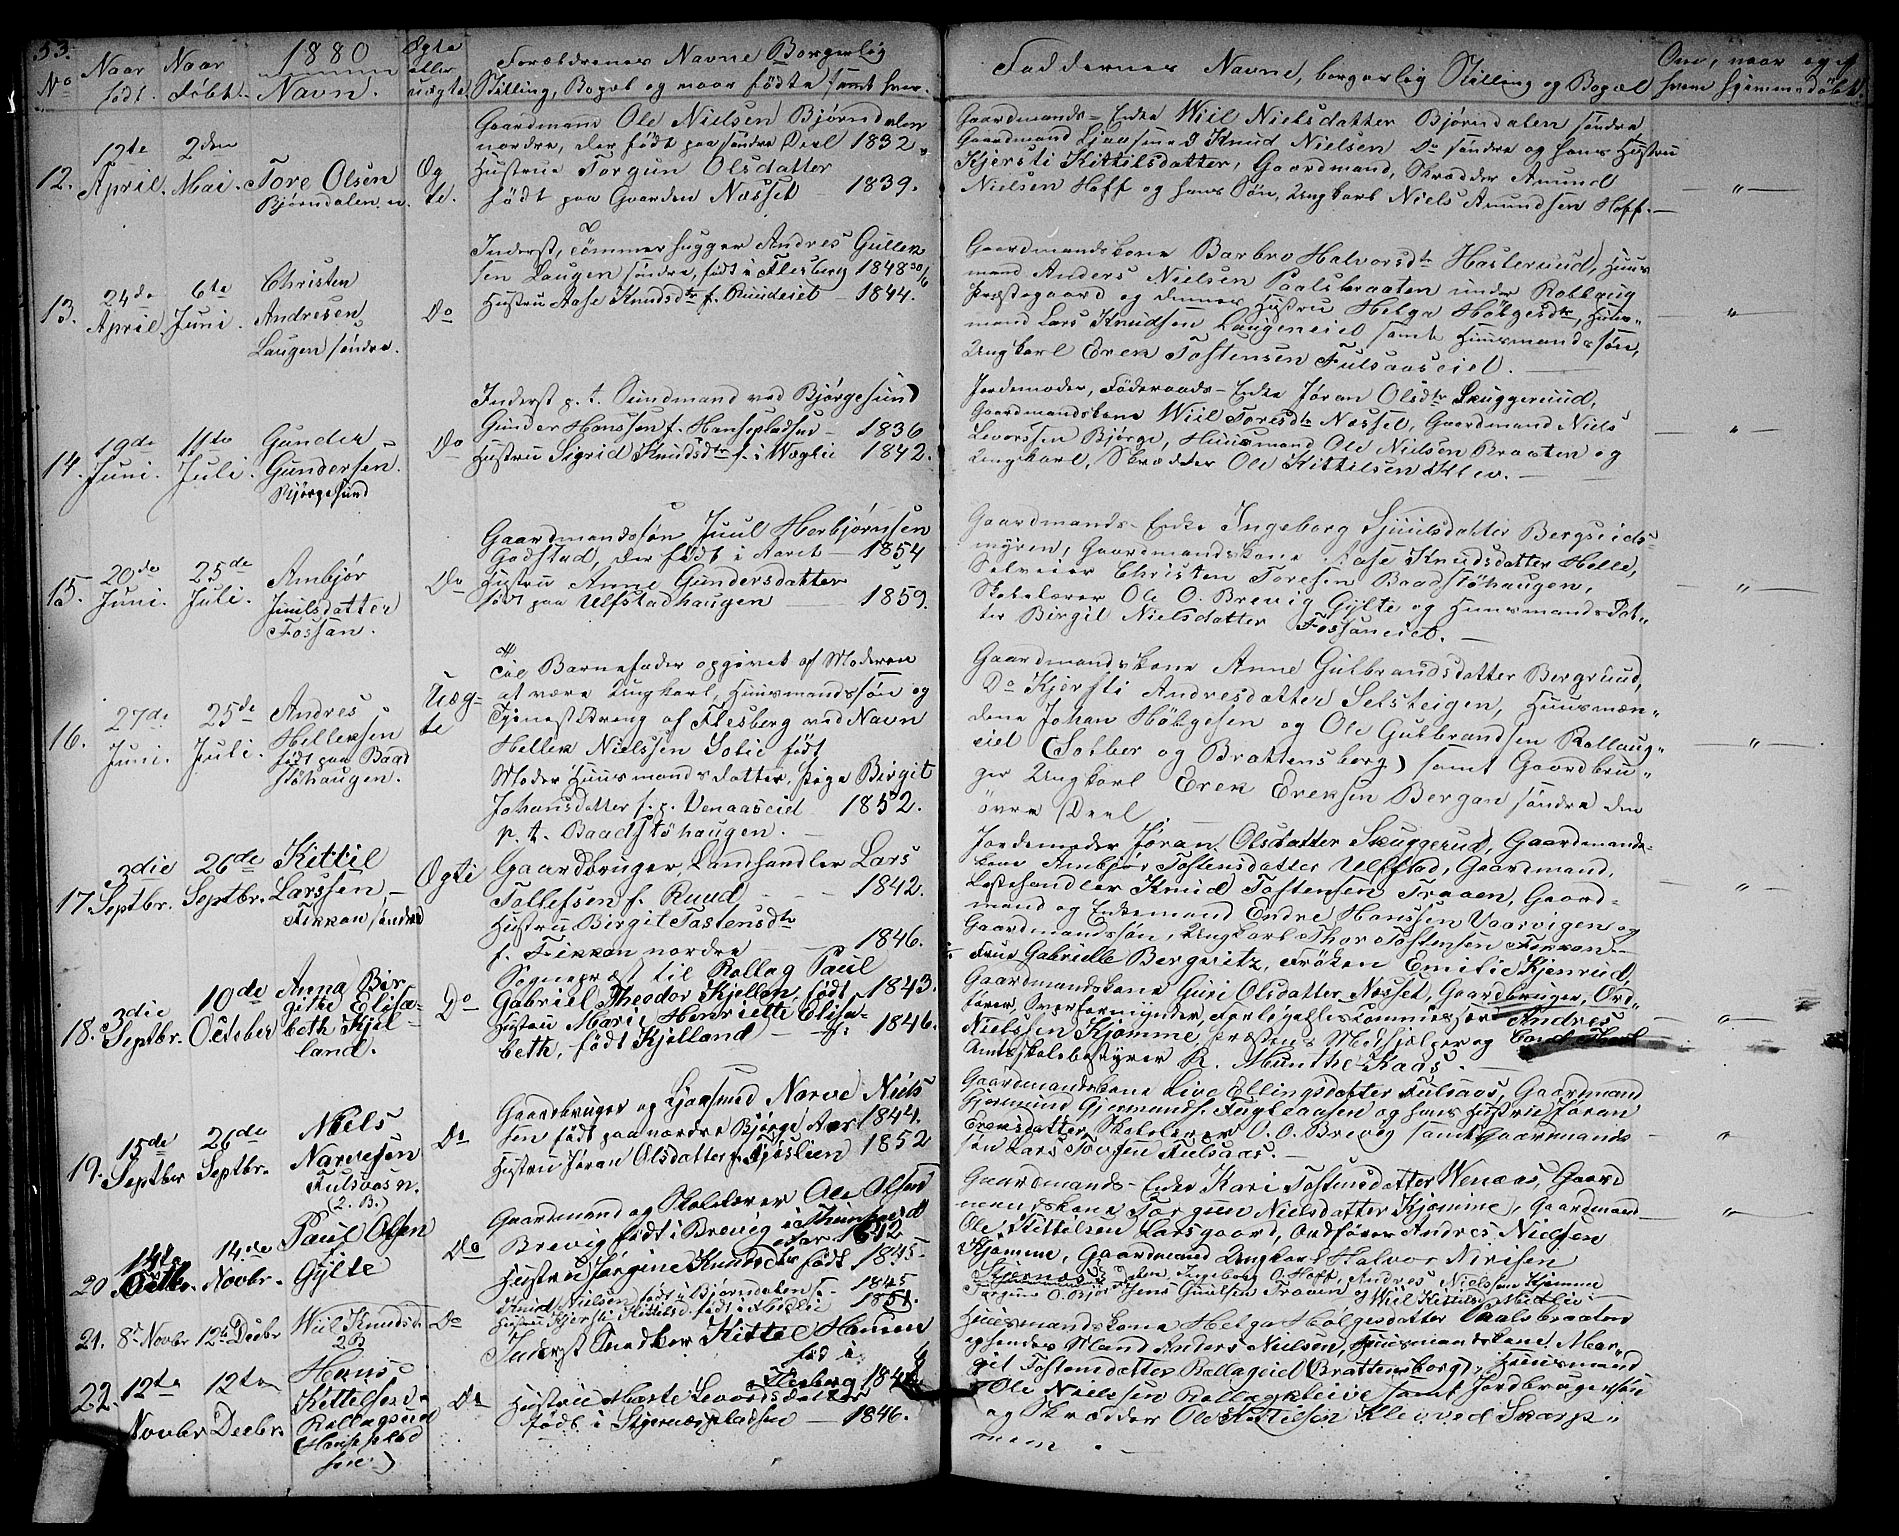 53.
No
Naar født.
Naar Døbt.
1880
Navn.
Ægte eller uægte
Forældrenes Navne Borgerlig
Stilling, Bopæl og naar fødte samt hvor.
Faddernes Navne, borgerlig Stilling og Bopæl
Om, naar og af
hvem hjemmedøbt.
12.
12te April.
2den Mai.
Tore Olsen
Bjørndalen n.
Æg
te.
Gaardmand Ole Nielsen Bjørndalen
nordre, der født paa søndre Deel 1832,
Hustrue Torgun Olsdatter
født paa Gaarden Næsset 1839.
Gaardmands-Enke Wiil Nielsdatter Bjørndalen søndre
Gaardmand Knud Nielsen Do søndre og hans Hustru
Kjersti Kittilsdatter, Gaardmand, Skrædder Amund
Nielsen Hoff og hans Søn, Ungkarl Niels Amundsen Hoff.
13.
24de April.
6te Juni.
Christen
Andresen
Laugen søndre.
Do
Inderst, Tømmerhugger Andres Gullek
sen Laugen søndre, født i Flesberg 1848
Hustru Aase Knudsdtr f. Ruudeiet 1844.
Gaardmandskone Barbro Halvorsdtr Hasleruud, Huus
mand Anders Nielsen Paalsbraaten under Rollaug
Præstegaard og dennes Hustru Helga Hølgesdtr, Huus
mand Lars Knudsen Laugeneiet samt Huusmandssøn,
Ungkarl Erek Tostensen Fulsaaseiet.
14.
19de Juni.
11te Juli.
Gunder
Gundersen
Bjørgesund
Do
Inderst p. t. Sundmand ved Bjørgesund
Gunder Hanssen f. Hansepladsen 1836
Hustru Sigrid Knudsdtr f. i Væglie 1842.
Jordemoder, Føderaads-Enke Jøran Olsdtr Skuggeruud,
Gaardmandskone Wiil Toresdtr Næsset, Gaardmand Niels
Levorssen Bjørge, Huusmand Ole Nielsen Braaten og
Ungkarl, Skrædder Ole Kittilsen
15.
20de Juni.
25de Juli.
Ambjør
Juulsdatter
Fossan.
Do
Gaardmandssøn Juul Herbjørnsen
Godstad, der født i Aaret 1854
Hustru Anne Gundersdatter
født paa Ulfstadhaugen 1859.
Gaardmands-Enke Ingeborg Sjuulsdatter Bergseids
myren, Gaardmandskone Aase Knudsdatter Helle,
Selveier Christen Toresen Baadstøhaugen,
Skolelærer Ole O. Brevig Gylte og Huusmands Dat
ter Birgit Nielsdatter Fossaneiet.
16.
27de Juni.
25de Juli.
Andres
Helleksen
født paa Baad
støhaugen.
Uæg-
te
Til Barnefader opgivet af Moderen
at være Ungkarl, Huusmandssøn og
Tjenestdreng af Flesberg ved Navn
Hellek Nielssen født
Moder Huusmandsdatter, Pige Birgit
Johansdatter f. p. Venaaseid 1852.
p. t. Baadstøhaugen.
Gaardmandskone Anne Gulbrandsdatter Bergruud,
Do Kjersti Andresdatter Selsteigen, Huusmæn-
dene Johan Hølgesen og Ole Gulbrandsen Rollaug-
eiet (Solber og Brattensberg) samt Gaardbru-
ger Ungkarl Erek Ereksen Bergan søndre den
øvre Deel
17.
3die Septbr.
26de Septbr.
Kittil
Larssen
Fikkan søndre
Ægte
Gaardbruger, Landhandler Lars
Tollefsen f. Ruud, 1842.
Hustru Birgit Tostensdtr
f. Fikkan nordre 1846.
Jordemoder Jøran Olsdatter Skuggerud, Gaardmands-
kone Ambjør Tostensdatter Ulfstad, Gaardmand,
Lastehandler Knud Tostensen Traaen, Gaard-
mand og Enkemand Endre Hanssen Vaarvigen og
Gaardmandssøn, Ungkarl Thor Tostensen Fikkan.
18.
3die Septbr.
10de October
Anna Bir
githe Elisa-
beth Kjel
land.
Do
Sognepræst til Rollag Paul
Gabriel Theodor Kjelland, født 1843.
Hustru Marie Henriette Elisa-
beth, født Kjelland 1846.
Frue Gabrielle Bergwitz, Frøken Emilie Kjenrud,
Gaardmandskone Guri Olsdatter Næsset, Gaardbruger, Ord-
fører, Overformynder, Forligelseskommissær Andres
Nielssen Kjømme, Præstens Medhjælper og
Amtsskolebestyrer R. Munthe-Kaas.
19.
15de Septber
26de Septbr.
Niels
Narvesen
Fulsaas n.
(2. B.)
Do
Gaardbruger og Narve Niels
sen født paa nordre Bjørge Aar 1844.
Hustru Jøran Olsdatter f. Fjøslien 1852
Gaardmandskone Live Ellingsdatter Fulsaas, Gaardmand
Gjermund Gjermunds. Fuglaasen og hans Hustru Jøran
Ereksdatter, Skolelærer O. O. Brevig samt Gaardmands
søn Lars Tovsen Fulsaas.
20
14te Octbr.
14de Novbr.
Paul Olsen
Gylte
Do
Gaardmand og Skolelærer Ole Olsen
Brevig født i Brevig i
1842
Hustru Jørgine Knudsdtr født 1845.
Gaardmands-Enke Kari Tostensdatter Wenaas, Gaard
mandskone Torgun Nielsdatter Kjømme, Gaardmand
Ole Kittilsen Larsgaard, Ordfører Andres Nielsen
Kjømme, Gaardmand Ungkarl Halvor Nirisen
Stjernes
21.
8de Novbr
12te Decbr
Wiil Knudsdtr
Do
Knud Nielsen født i Bjørndalen s. 1845
Hustru Kjersti Kittilsd. født i 1851.
Torgune O. Bjør Ingeborg O. Hoff, Andres Nielsen Kjømme
Jens Guulsen Traaen og Wiil Kittilsd.
22.
12te Novbr
12te Decbr
Hans
Kittelsen
Rollagseid
(Hansepladsen)
Do
Inderst Snedker Kittel Hansen
fød i
Flesberg 184
Hustru Marte Levordsdatter
født i Stjernæspladsen 1846.
Huusmandskone Helga Hølgesdatter Paalsbraaten
og hendes Mand Anders Nielsen, Huusmandskone Mar-
git Tostensdatter Rollageiet (Brattensborg), Huusmand
Ole Nielssen Rollagkleive samt Jordbrugersøn
og Skrædder Ole Kittilsen Klev ved Skarp